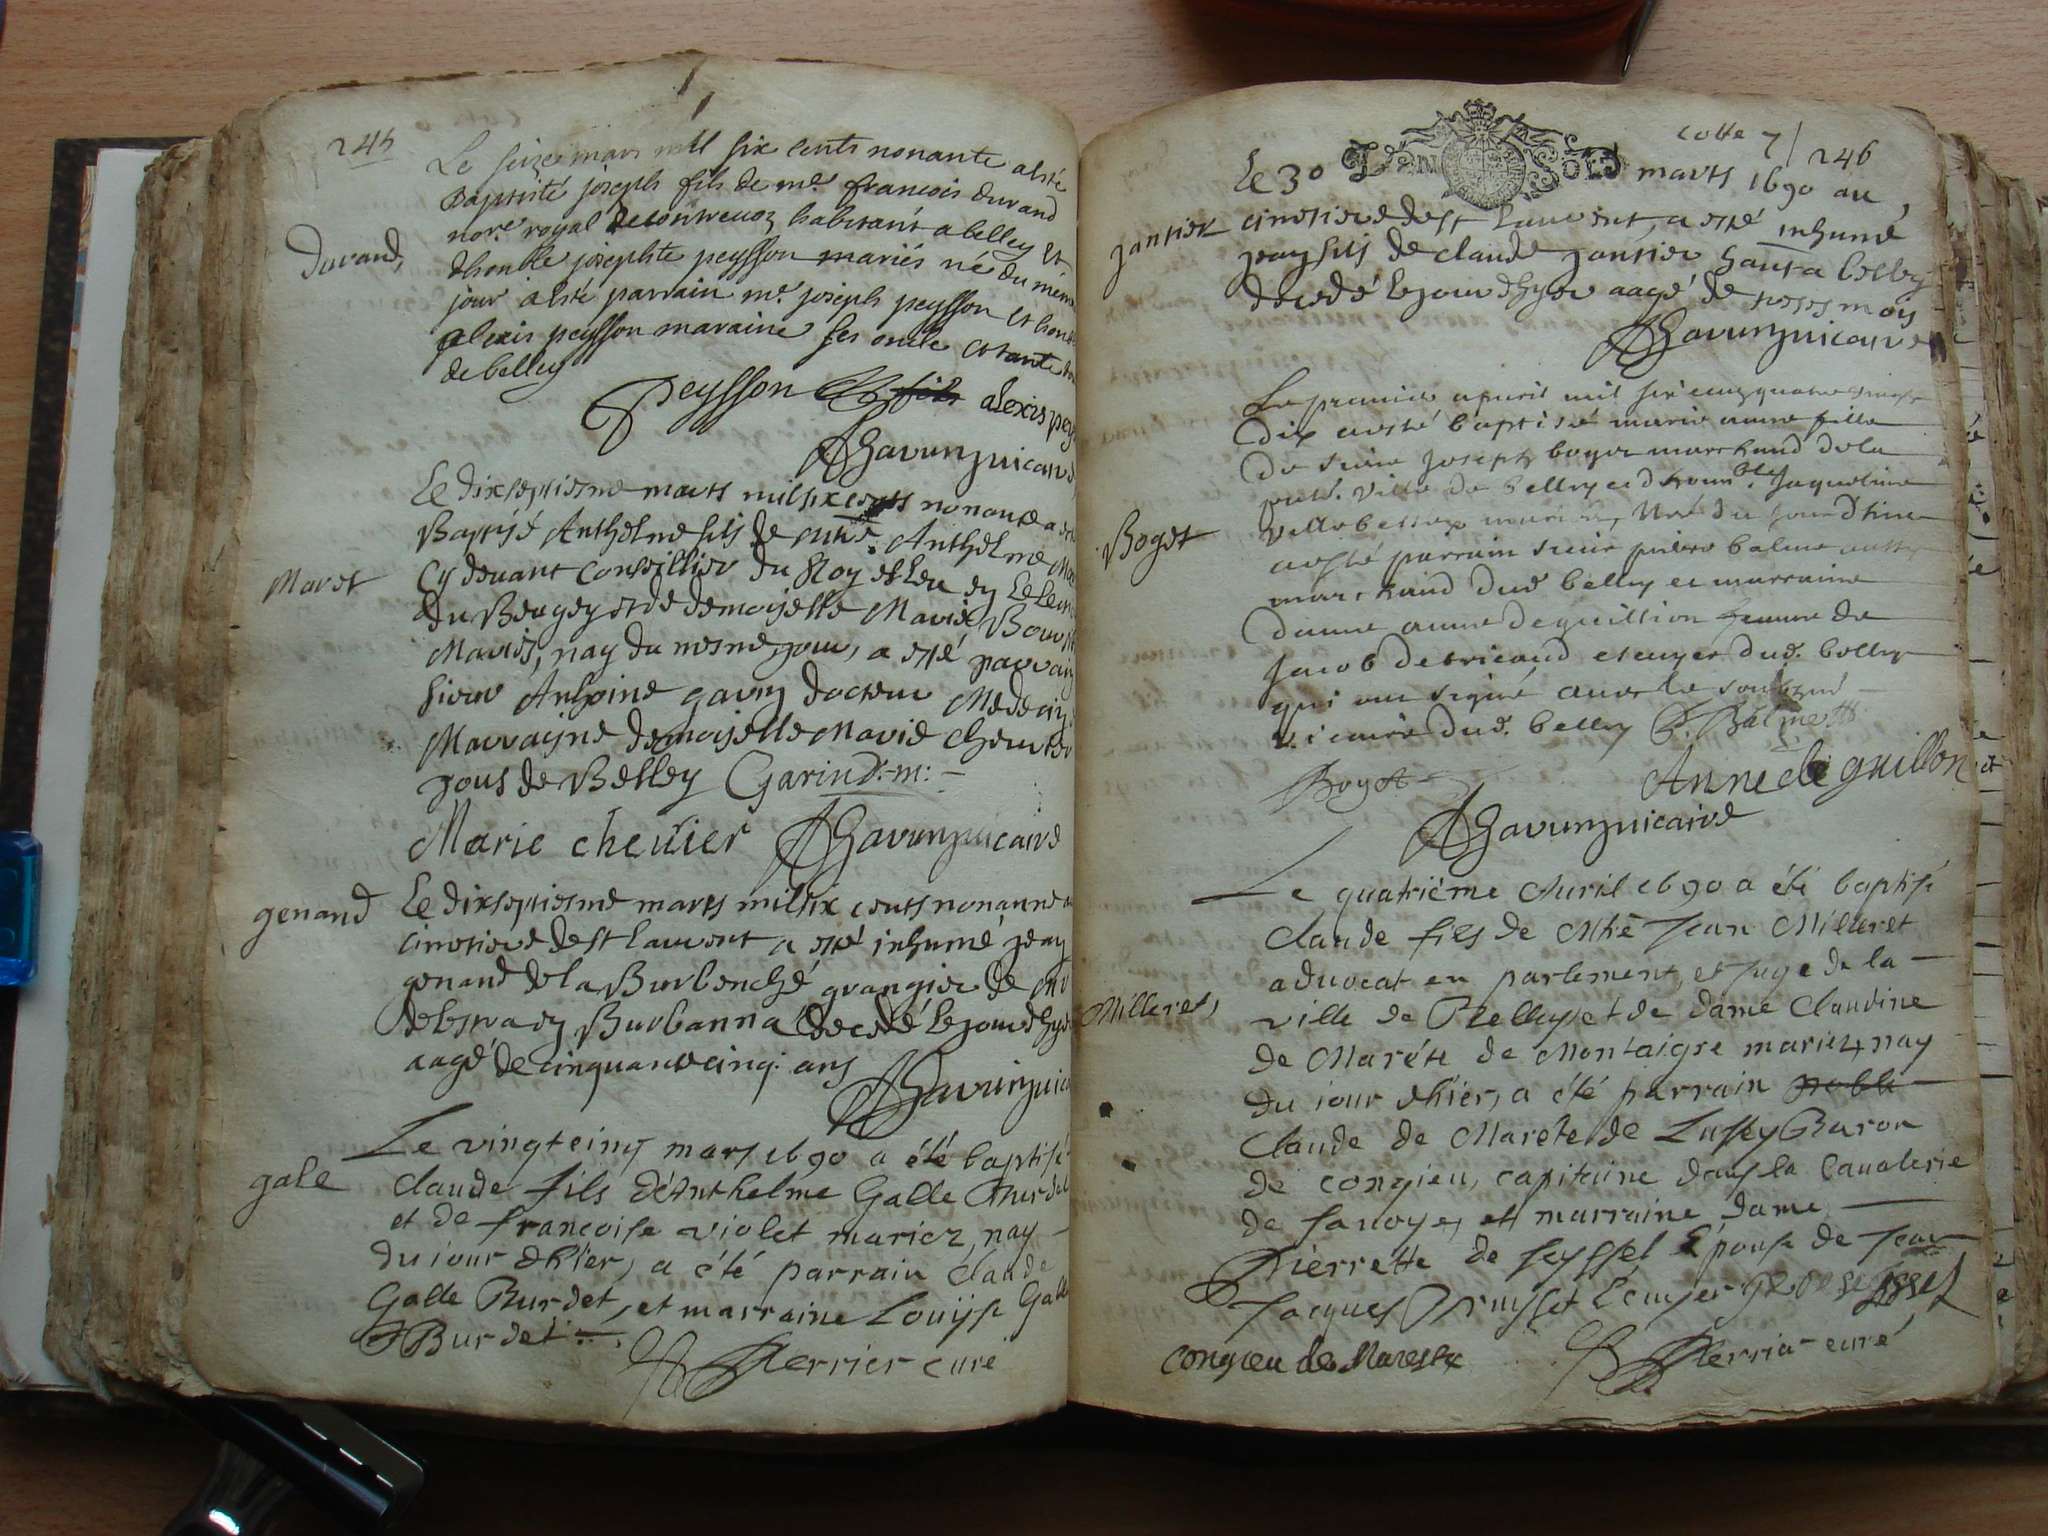 245
Le seize mars mill six cents nonante a lsté
Baptisté joseph fils de me. francois durand
nore. royal habitant a belley et
durand,
dhonble josephte peysson mariés né du mém
jour a lsté parrain me. joseph peysson et hon
alexis peysson maraine ses oncle et tante
de belley
Peysson fils alexis pey
vicaire
Le dixseptiesme mars mil six cents nonante a
Baptisé Anthelme fils de Anthelme
Maret
Cy devant conseillier du Roy esleu en
du Beugey et de demoyselle Marie
Mariés, nay du mesme jour, a esté parrain
sieur Anthoine garin docteur Medecin
Marrayne demoyselle Marie chevrier
tous de Belley Garin D.-m:
Marie chevrier vicaire
genand
Le dixseptiesme mars mil six cents nonante
cimetiere de st laurent a esté inhumé jean
genand de la Burbenche grangier de
Burbanna decedé le jour dhyer
aagé de cinquantecinq. ans
Le vingtcinq mars 1690 a été baptisé
gale
claude fils d'Anthelme Galle Burdet
et de francoise violet mariez, nay
du jour dhier, a été parrain claude
Galle Burdet, et marraine Louyse Galle
Burdet
curé
cotte 7 246
Le 30 mars 1690 au
jantier
cimetiere de st Laurent, a esté inhumé
jean fils de claude jantier a belley
decedé le jour dhyer aagé de moys
vicaire
Le premier apvril mil six cens quatre vingt
dix a esté baptisé marie anne fille
de sieur joseph boget marchand de la
ville de belley et d honnble. Jaqueline
Boget
mariés, née du jourdhuy
a esté parrain sieur balme aussy
marchand dud. belley et marraine
dame anne deguillion femme de
Jacob de bricaud escuyer dud. belley
qui ont signé avec le soubsné
vicaire dud. belley Balme
Boget
Anne de guillon
vicaire
Le quatriéme Avril 1690 a été baptisé
claude fils de Mre Jean Milleret
advocat en parlement, et juge de la
Milleret,
ville de Belley et de dame Claudine
de Maréte de Montaigre mariez, nay
du jour dhier, a été parrain noble
Claude de Maréte de Luysey Baron
de congieu, capitaine dans la cavalerie
de savoye, et marraine dame
Pierrette de seyssel Epouse de Jean
Jacques Ecuyer
congieu de Mareste
curé